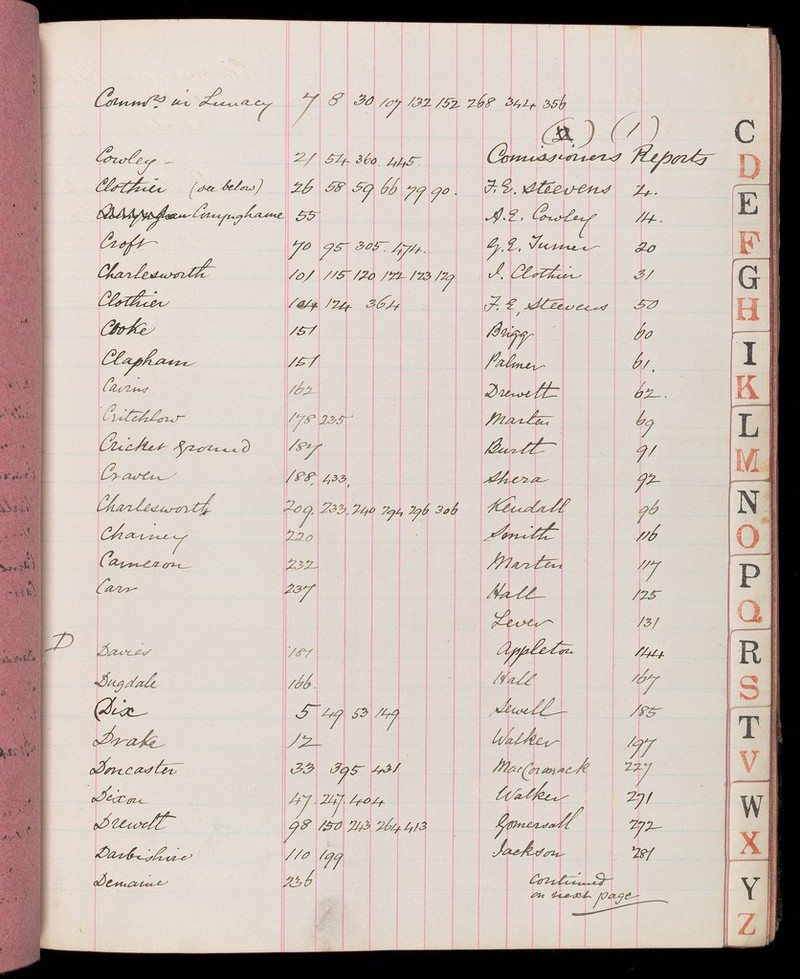 Comm^rs in Lunacy 7 8 30 107 132 152 268 344 356
(1)
Cowley – 21 54 360. 445. Comissioners Reports
Clothier (see below) 26 58 59 66 79 90. F.E. Steevens 4.
Conyghame 55 A.E. Cowley 14.
Croft 70 95 305. 474. G.E. Turner 20
Charlesworth 101 115 120 122 123 129 I. Clothier 31
Clothier 104 124 364 F.E. Steevens 50
Cooke 151 Brigg 60
Clapham 151 Palmer 61.
Cavins 162 Drewett 62.
Critchlow 178 235 Marten 69
Cricket Ground 187 Burtt 91
Craven 188. 433. Shera 92
Charlesworth 209. 233. 240 294 296 306 Kendall 96
Chainey 220 Smith 116
Cameron 232 Marten 117
Carr 237 Hall 125
Lever 131
D Davies 181 Appleton 144
Dugdale 166 Hall 167
Dix 5 49 53 149 Sewell 185
Drake 12 Walker 197
Doncaster 33 395 431 MacCormack 227
Dixon 47 247. 404 Walker 271
Drewett 98 150 243 264 413 Gomersall 272
Darbishire 110 199 Jackson 281
Demaine 236 continued
on next page
C
D
E
F
G
H
I
K
L
M
N
O
P
Q
R
S
T
V
W
X
Y
Z